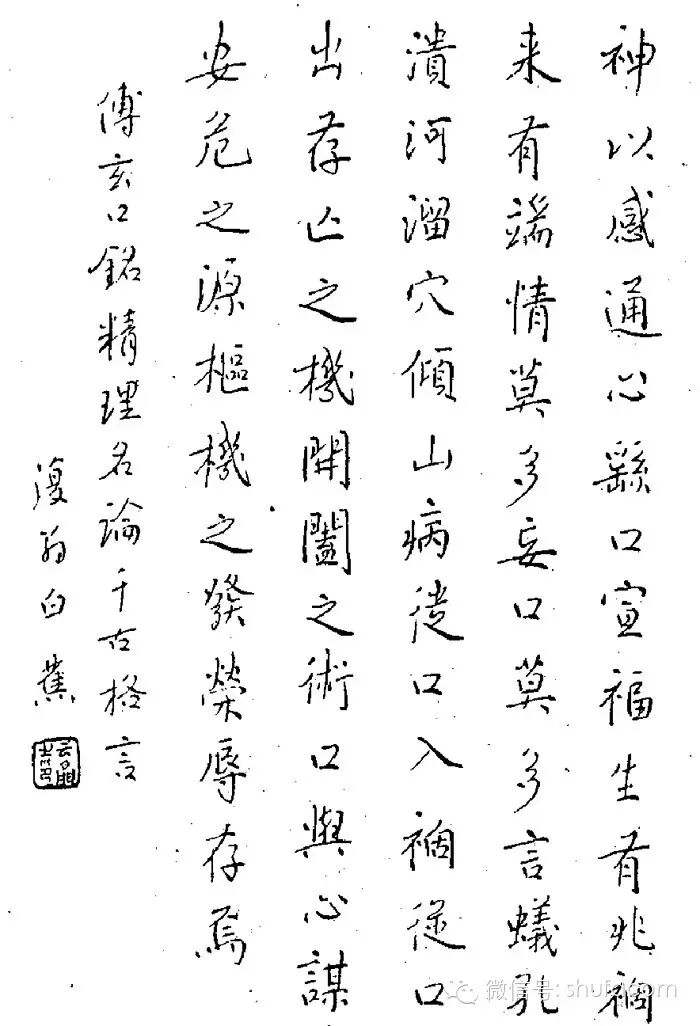 神以感通心繇口宣福生有兆禍
来有端情莫多妄口莫多言蟻孔
潰河溜穴傾山病從口入禍從口
出存亡之機開闔之術口與心謀
安危之源樞機之發榮辱存焉
傅玄口銘精理名論千古格言
復翁白蕉
微信号: shufa